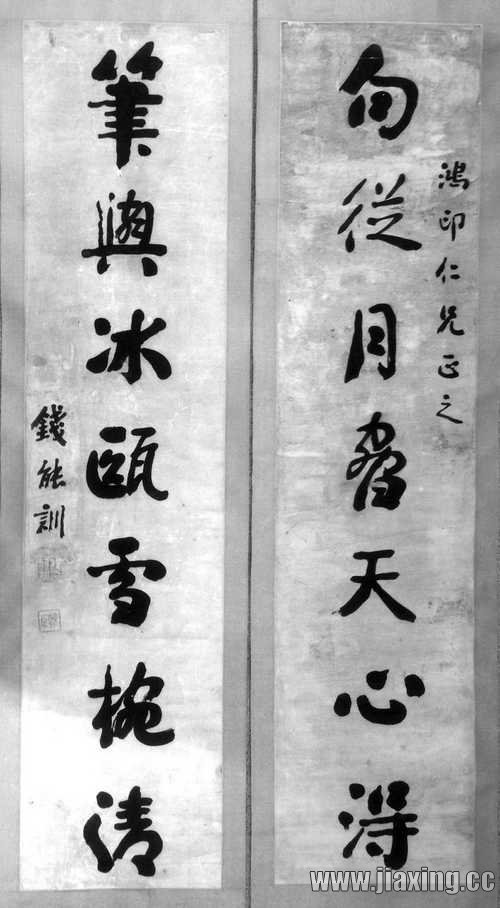 鴻印仁兄正之
句從月脅天心得
筆與冰甌雪椀清
錢能訓
www.jiaxing.cc